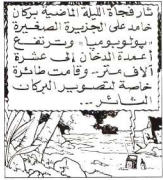 ثار فجأة الليلة الماضية بركان
خامد على الجزيرة الصغيرة
"يولويوميا" وترتفع
أعمدة الدخان إلى عشرة
آلاف متر.. وقامت طائرة
خاصة لتصوير البركان
الثائر..